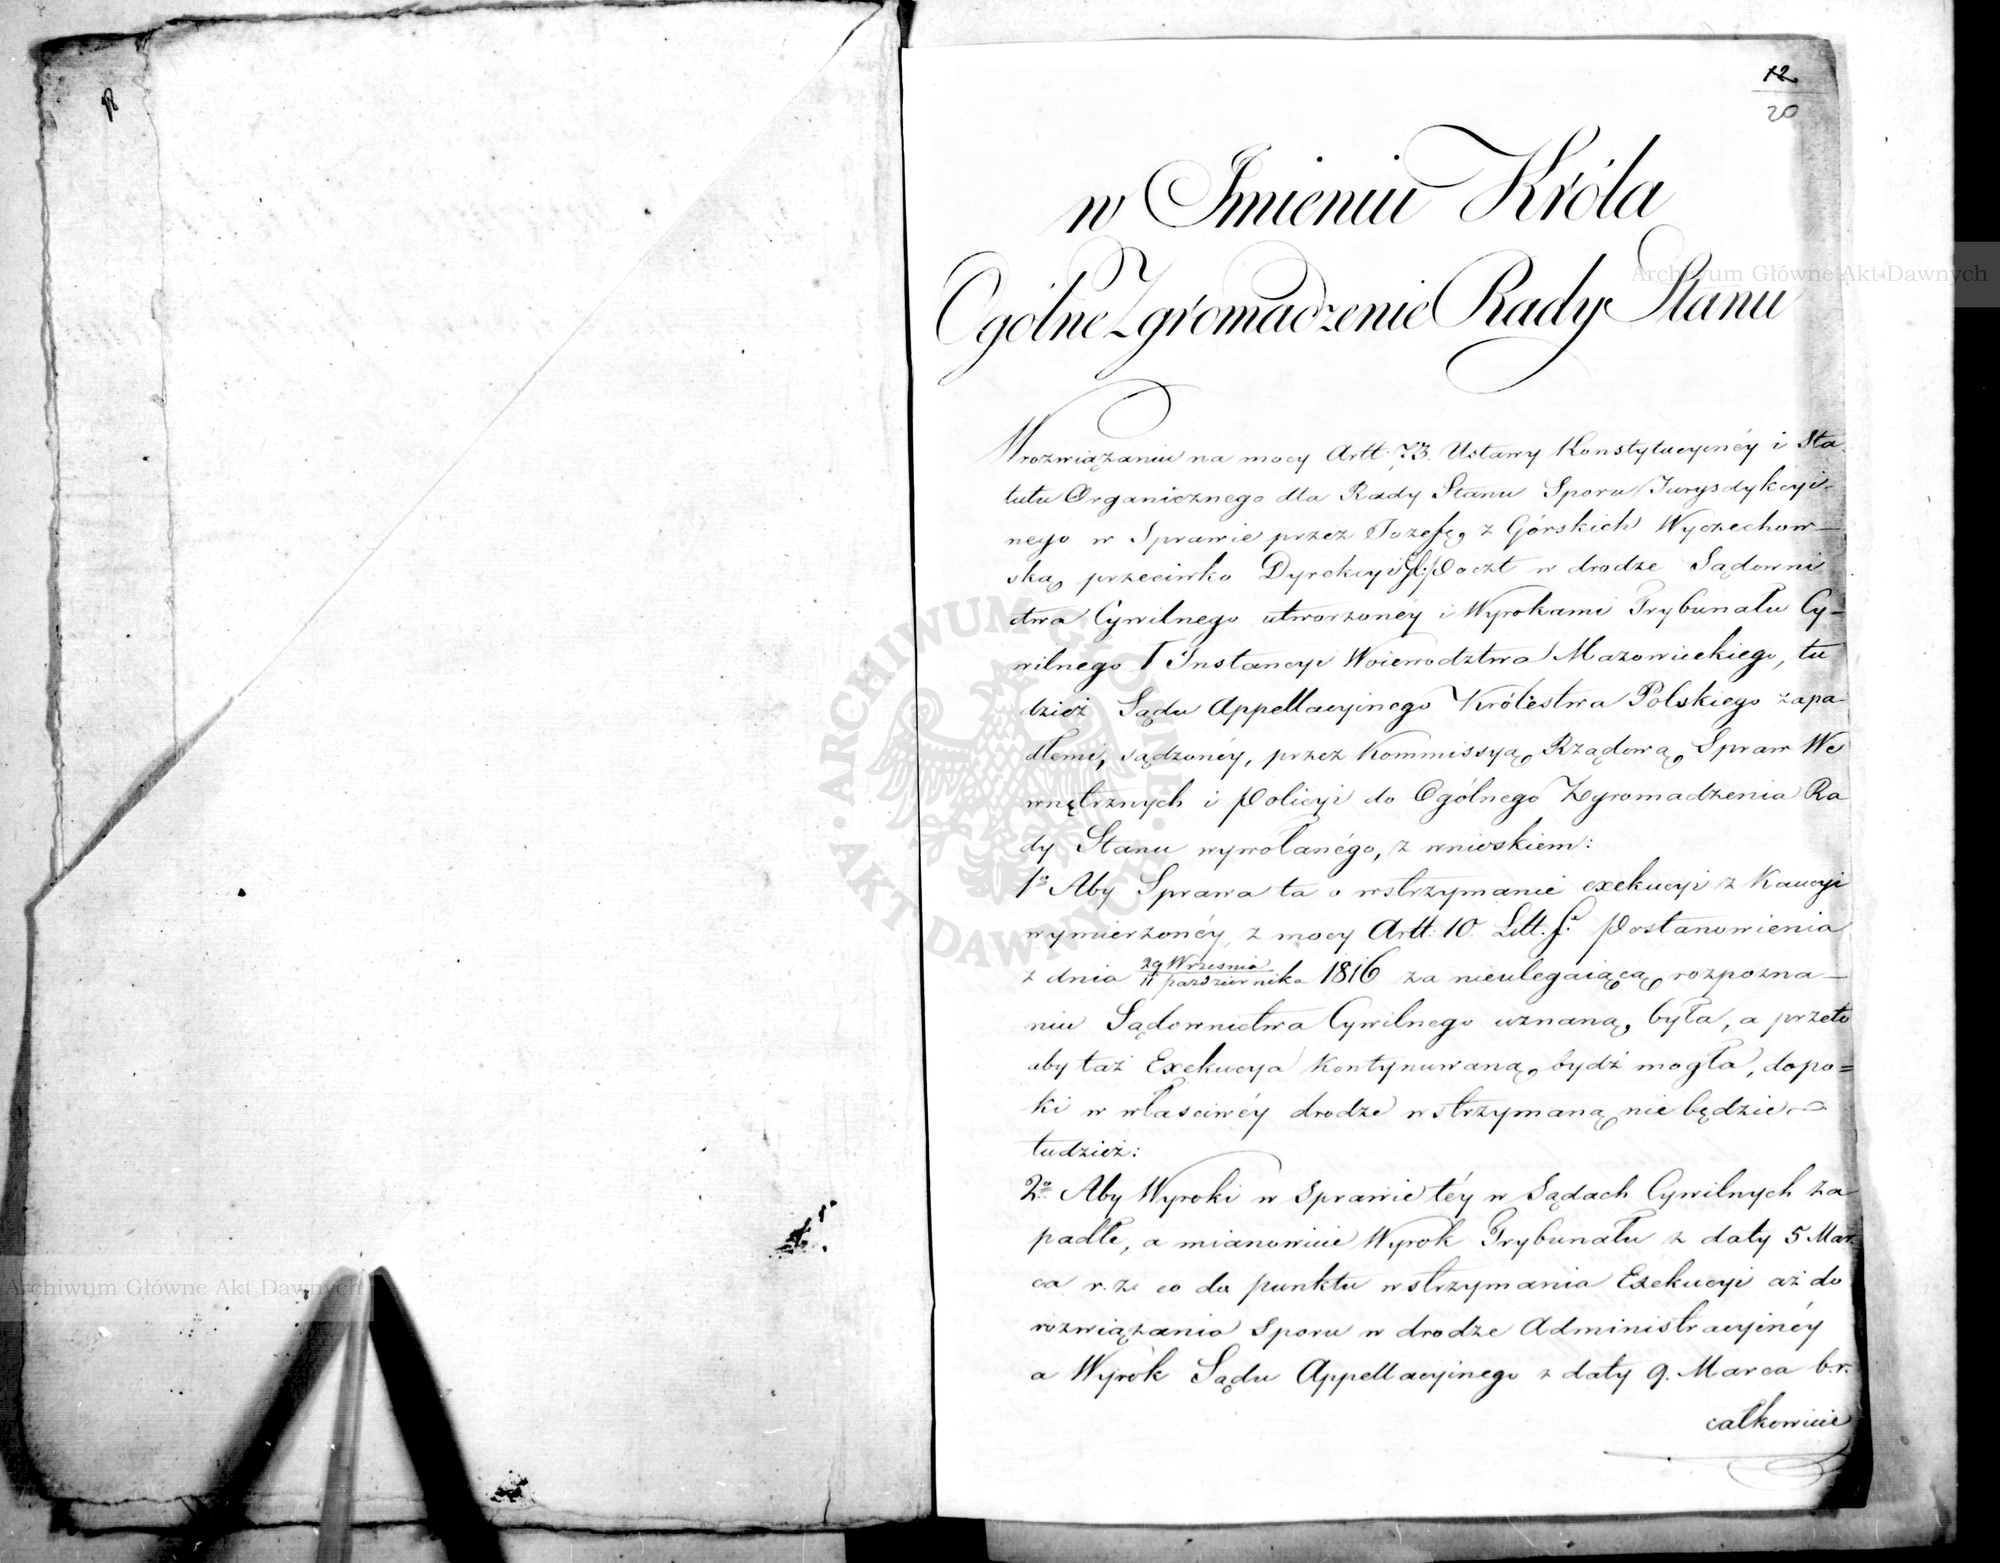 12.
20
w Imieniu Króla
Ogólne Zgromadzenie Rady Stanu
W rozwiązaniu na mocy Artt. 73. Ustawy Konstytucyinéy i Sta-
tutu Organicznego dla Rady Stanu Sporu Jurysdykcyi-
nego w Sprawie przez Jozefę z Górskich Wyczechow-
ską przeciwko Dyrekcyi Jl: Poczt w drodze Sądowni
ctwa Cywilnego utworzonéy i Wyrokami Trybunału Cy-
wilnego I Instancyi Woiewodztwa Mazowieckiego, tu
dzież Sądu Appellacyinego Królestwa Polskiego zapa-
dłemi, sądzonéy, przez Kommissyą Rządową Spraw We
wnętrznych i Policyi do Ogólnego Zgromadzenia Ra
dy Stanu wywołanégo, z wnioskiem:
1o Aby Sprawa ta o wstrzymanie exekucyi z Kaucyi
wymierzonéy, z mocy Artt: 10. Litt. f. Postanowienia
z dnia 29 Wrzesnia / 11 Pazdziernika 1816 za nieulegaiącą rozpozna-
niu Sądownictwa Cywilnego uznaną była, a przeto
aby taż Exekucya kontynuwaną bydź mogła, dopo=
ki w własciwéy drodze wstrzymaną nie będzie
tudzież:
2o. Aby Wyroki w Sprawie téy w Sądach Cywilnych za
padłe, a mianowicie Wyrok Trybunału z daty 5 Mar-
ca r. z. co do punktu wstrzymania Exekucyi aż do
rozwiązania Sporu w drodze Administracyinéy
a Wyrok Sądu Appellacyinego z daty 9. Marca b. r.
całkowicie
Archiwum Główne Akt Dawnych
Archiwum Główne Akt Dawnych
ARCHIWUM GŁÓWNE · AKT DAWNYCH ·